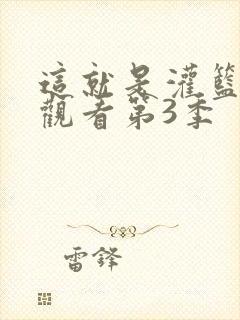 這就是灌籃
觀看第3季
雷鋒